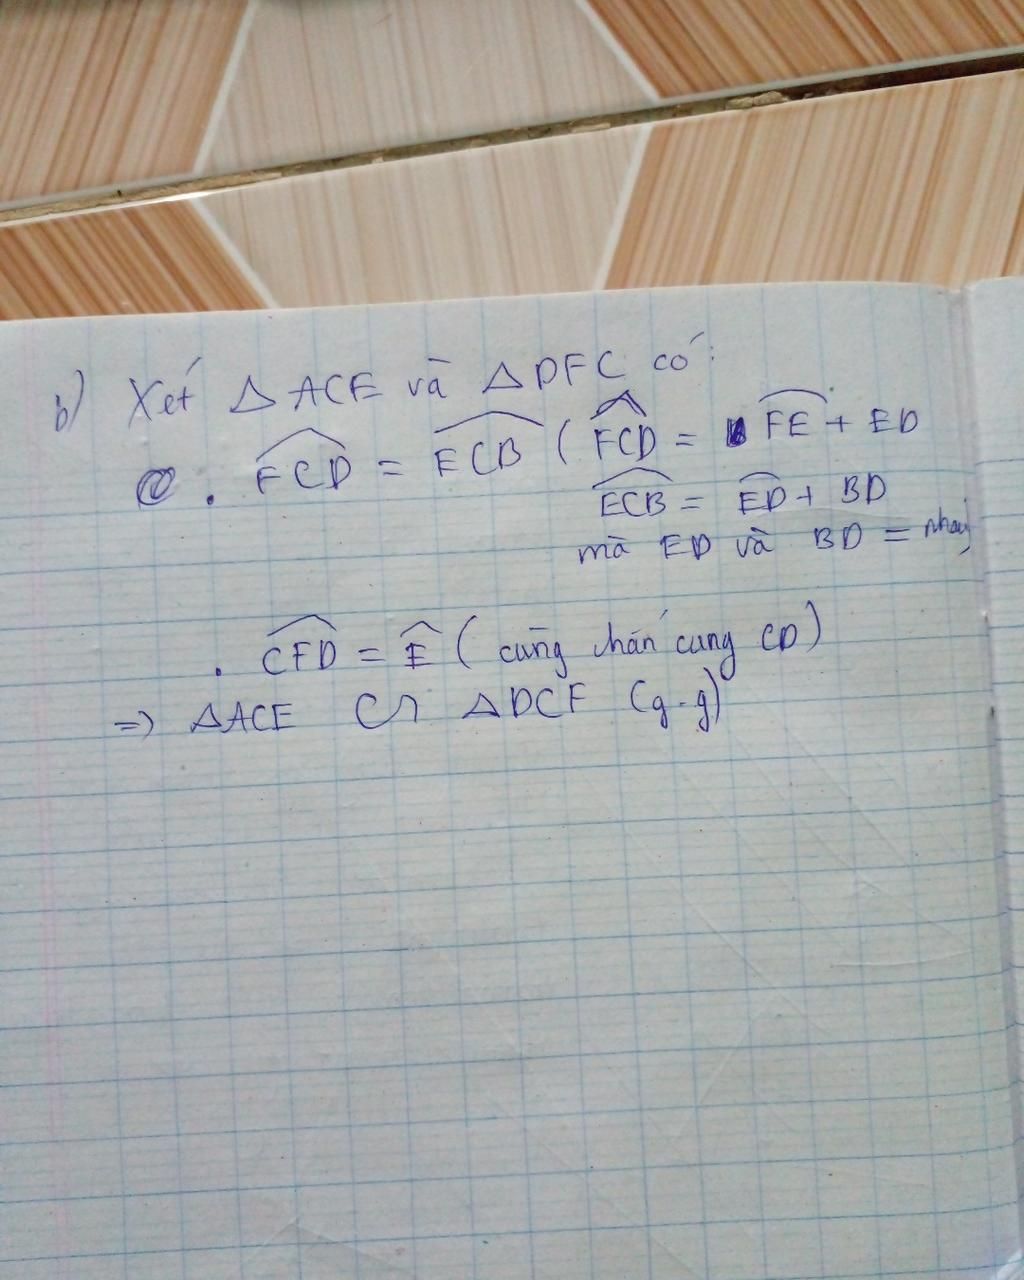 b) Xét △ACE và △DFC có:
. FCD = ECB ( FCD = FE + ED
ECB = ED + BD
mà ED và BD = nhau)
. CFD = E ( cùng chắn cung CD)
=> △ACE ∽ △DCF (g-g)